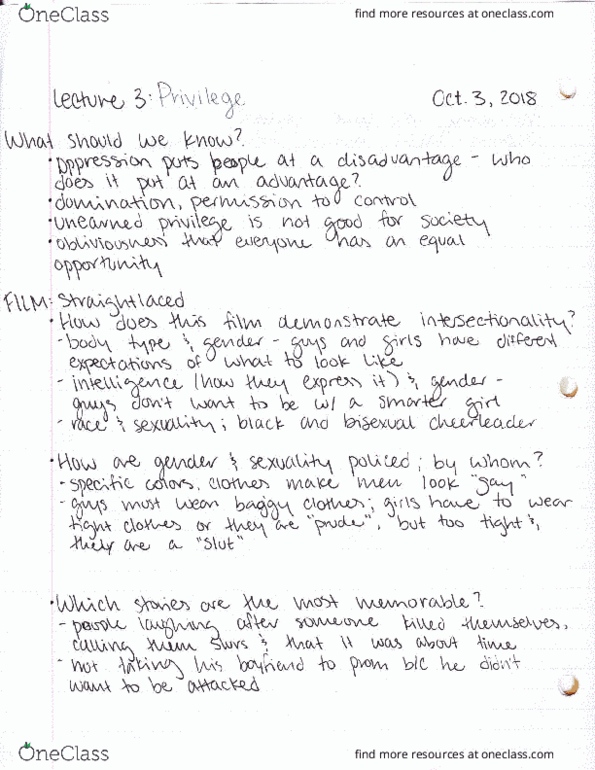 OneClass
find more resources at oneclass.com
Lecture 3: Privilege
Oct. 3, 2018
What should we know?
• oppression puts people at a disadvantage - who
does it put at an advantage?
• domination, permission to control
• unearned privilege is not good for society
• obliviousness that everyone has an equal
opportunity
FILM: Straightlaced
• How does this film demonstrate intersectionality?
- body type & gender - guys and girls have different
expectations of what to look like
- intelligence (how they express it) & gender -
guys don't want to be w/ a smarter girl
- race & sexuality; black and bisexual cheerleader
• How are gender & sexuality policed; by whom?
- specific colors, clothes make men look "gay"
- guys must wear baggy clothes; girls have to wear
tight clothes or they are "prude", but too tight &,
they are a "slut"
• Which stories are the most memorable?
- people laughing after someone killed themselves,
calling them slurs & that it was about time
- not taking his boyfriend to prom b/c he didn't
want to be attacked
OneClass
find more resources at oneclass.com